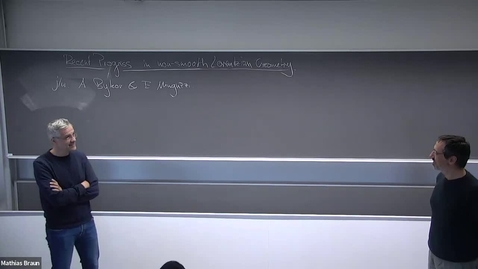 Recent Progress in non-smooth Lorentzian Geometry
A. Bykov & E.
Mathias Braun